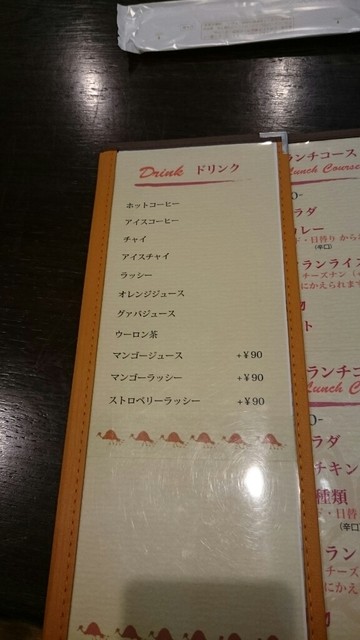 Drink ドリンク
ホットコーヒー
アイスコーヒー
チャイ
アイスチャイ
ラッシー
オレンジジュース
グァバジュース
ウーロン茶
マンゴージュース +¥90
マンゴーラッシー +¥90
ストロベリーラッシー +¥90
ランチコース
Lunch Course
0-
ラダ
カレー
ド・日替り から
(辛口)
ランライス
チーズナン
にかえられま
物
ト
ランチコ
Lunch C
0-
ラダ
チキン
種類
ド・日替
(辛口
ラン
チーズ
にかえ
物